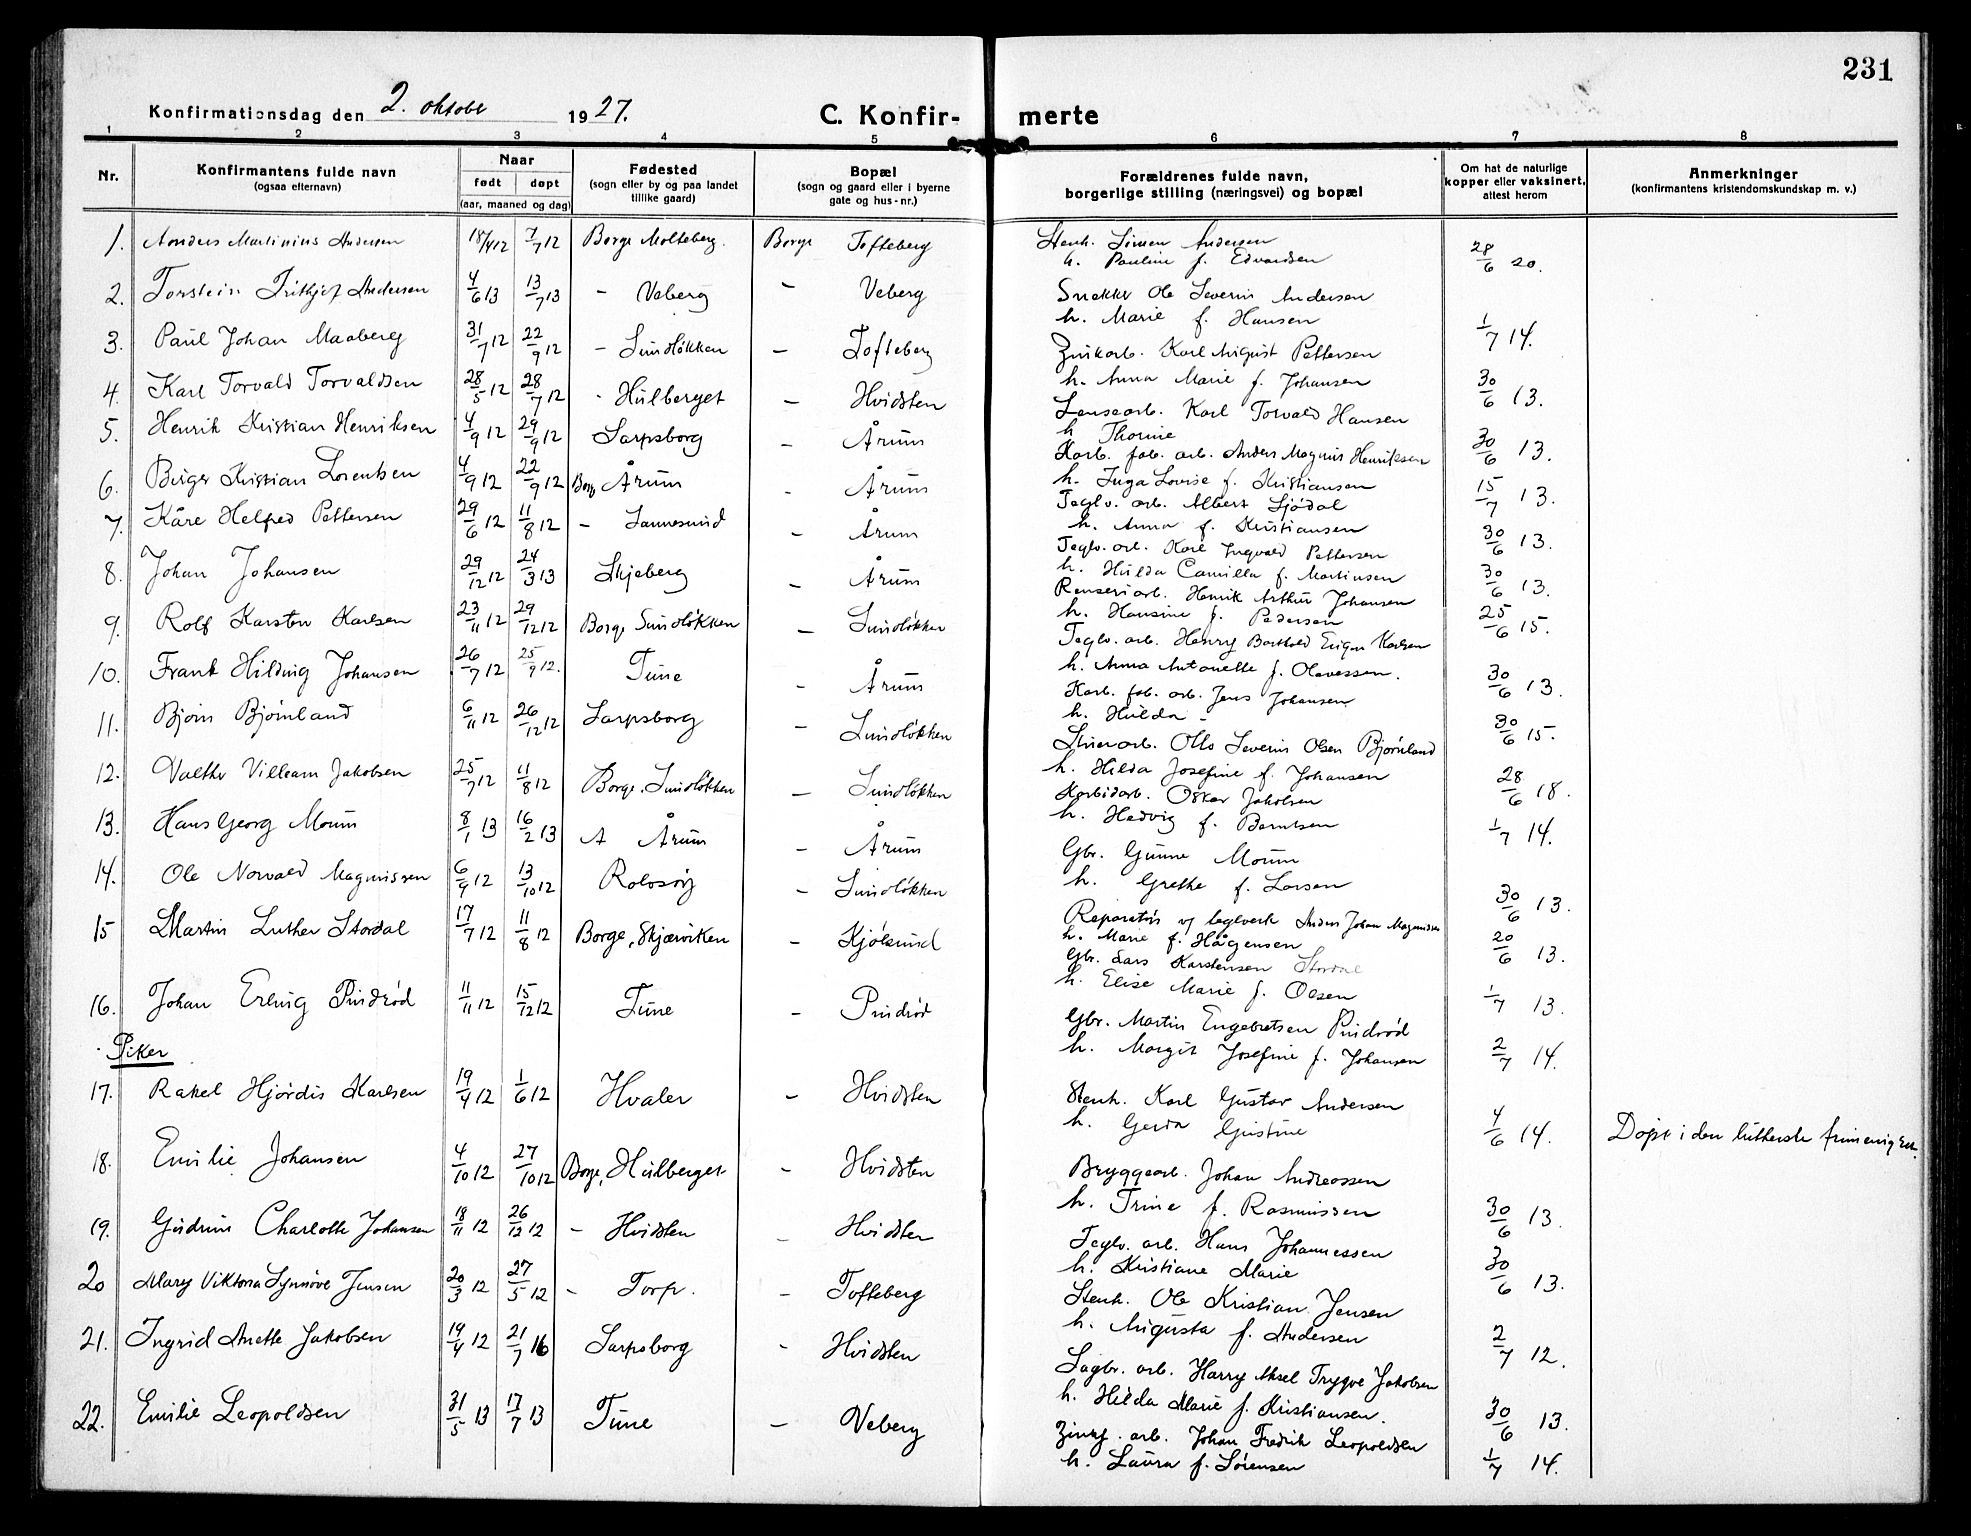 231
Konfirmationsdag den 2. oktobr 1927.
C. Konfirmerte
1 2 3 4 5 6 7 8
Nr.
Konfirmantens fulde navn
(ogsaa efternavn)
Naar
født døpt
(aar, maaned og dag)
Fødested
(sogn eller by og paa landet
tillike gaard)
Bopæl
(sogn og gaard eller i byerne
gate og hus-nr.)
Forældrenes fulde navn,
borgerlige stilling (næringsvei) og bopæl
Om hat de naturlige
kopper eller vaksinert,
attest herom
Anmerkninger
(konfirmantens kristendomskundskap m. v.)
1. Anders Martinius Andersen 18/4 12 7/7 12 Borge Molteberg. Borge Tofteberg
Stenh. Simen Andersen
h. Pauline f. Edvardsen 28/6 20.
2. Torstein Fritjof Andersen 4/6 13 13/7 13 - Veberg - Veberg
Snekker Ole Severin Andersen
h. Marie f. Hansen 1/7 14.
3. Paul Johan Maaberg 31/7 12 22/9 12 - Sundløkken - Tofteberg
Zinkarb. Karl August Pettersen
h. Anna Marie f. Johansen 30/6 13.
4. Karl Torvald Torvaldsen 28/5 12 28/7 12 - Hulberget - Hvidsten
Lensearb. Karl Torvald Hansen
h. Thorine 30/6 13.
5. Henrik Kristian Henriksen 4/9 12 29/9 12 Sarpsborg - Årum
Karb. fab. arb. Anders Magnus Henriksen
h. Inga Lovise f. Kristiansen 15/7 13.
6. Birger Kristian Lorentsen 4/9 12 22/9 12 Borg Årum - Årum
Teglv. arb. Albert Sjødal
h. Anna f. Kristiansen 30/6 13.
7. Kåre Helfred Pettersen 29/6 12 11/8 12 - Sannesund - Årum
Teglv. arb. Karl Ingvald Pettersen
h. Hulda Camilla f. Martinsen 30/6 13.
8. Johan Johansen 29/12 12 24/3 13 Skjeberg - Årum
Renseriarb. Henrik Arthur Johansen
h. Hansine f. Pedersen 25/6 15.
9. Rolf Karsten Karlsen 23/11 12 29/12 12 Borge Sundløkken - Sundløkken
Teglv. arb. Henry Barthold Karlsen
h. Anna Antonette f. Olavessen. 30/6 13.
10. Frank Hilding Johansen 26/7 12 25/9 12. Tune - Årum
Karb. fab. arb. Jens Johansen
h. Hulda - 30/6 15.
11. Bjørn Bjørnland 6/11 12 26/12 12 Sarpsborg - Sundløkken
Stuerarb. Otto Severin Olsen Bjørnland
h. Hilda Josefine f. Johansen 28/6 18.
12. Valther Villeam Jakobsen 25/7 12 11/8 12 Borge. Sundløkken - Sundløkken
Karbidarb. Oskar Jakobsen
h. Hedvig f. Berntsen 1/7 14.
13. Hans Georg Moum 8/1 13 16/2 13 Årum - Årum
Gbr. Gunne Moum
h. Grethe f. Larsen 30/6 13.
14. Ole Norvald Magnussen 6/9 12 13/10 12 Rolvsøy - Sundløkken
Reparatør v/ teglverk Anders Johan Magnussen
h. Marie f. Hågensen 20/6 13.
15 Martin Luther Stordal 17/7 12 11/8 12 Borge, Skjærviken - Kjølsund
Gbr. Lars Karstensen Stordal
h. Elise Marie f. Olsen 1/7 13.
16. Johan Erling Pindrød 11/11 12 15/12 12 Tune - Pindrød
Gbr. Martin Engebretsen Pindrød
h. Margit Josefine f. Johansen 2/7 14.
Piker
17. Rakel Hjørdis Karlsen 19/4 12 1/6 12 Hvaler - Hvidsten
Stenh. Karl Gustav Andersen
h. Gerda Gustine 4/6 14. Døpt i den lutherske frimenighet.
18. Emilie Johansen 4/10 12 27/10 12 Borge, Hulberget - Hvidsten
Bryggearb. Johan Andreassen
h. Trine f. Rasmussen 30/6 13.
19. Gudrun Charlotte Johansen 18/11 12 26/12 12 - Hvidsten - Hvidsten
Teglv. arb. Hans Johannessen
h. Kristiane Marie 30/6 13.
20 Mary Viktoria Synnøve Jensen 20/3 12 27/5 12 - Torp. - Tofteberg
Stenh. Ole Kristian Jensen
h. Augusta f. Andersen 2/7 12.
21. Ingrid Anette Jakobsen 19/4 12 21/7 16 Sarpsborg - Hvidsten
Sagbr. arb. Harry Aksel Trygve Jakobsen
h. Hilda Marie f. Kristiansen. 30/6 13.
22. Emilie Leopoldsen 31/5 13 17/7 13 Tune - Veberg
Zinkf. arb. Johan Fredrik Leopoldsen
h. Laura f. Sørensen 1/7 14.